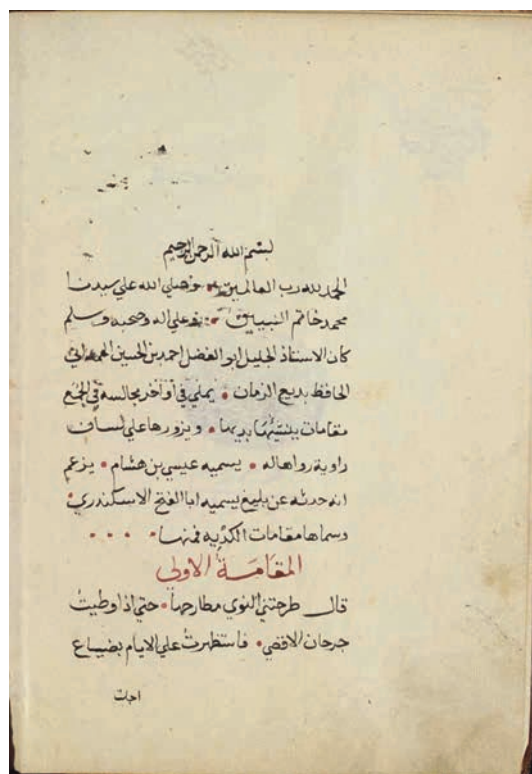 بسم الله الرحمن الرحيم
الحمد لله رب العالمين وصلي الله علي سيدنا
محمد خاتم النبيين وعلي اله وصحبه وسلم
كان الاستاذ الجليل ابو الفضل احمد بن الحسين الهمداني
الحافظ بديع الزمان • يملي في أواخر مجالسه في الجمع
مقامات ينشيها بديها • ويزورها علي لسان
راوية رواها له • يسميه عيسي بن هشام • يزعم
انه حدثه عن بليغ يسميه ابا الفتح الاسكندري •
وسماها مقامات الكدية فمنها • • • •
المقامة الاولي
قال طرحتني النوي مطارحها • حتي اذا وطيت
جرجان الاقصي • فاستظهرت علي الايام بضياع
اجلت